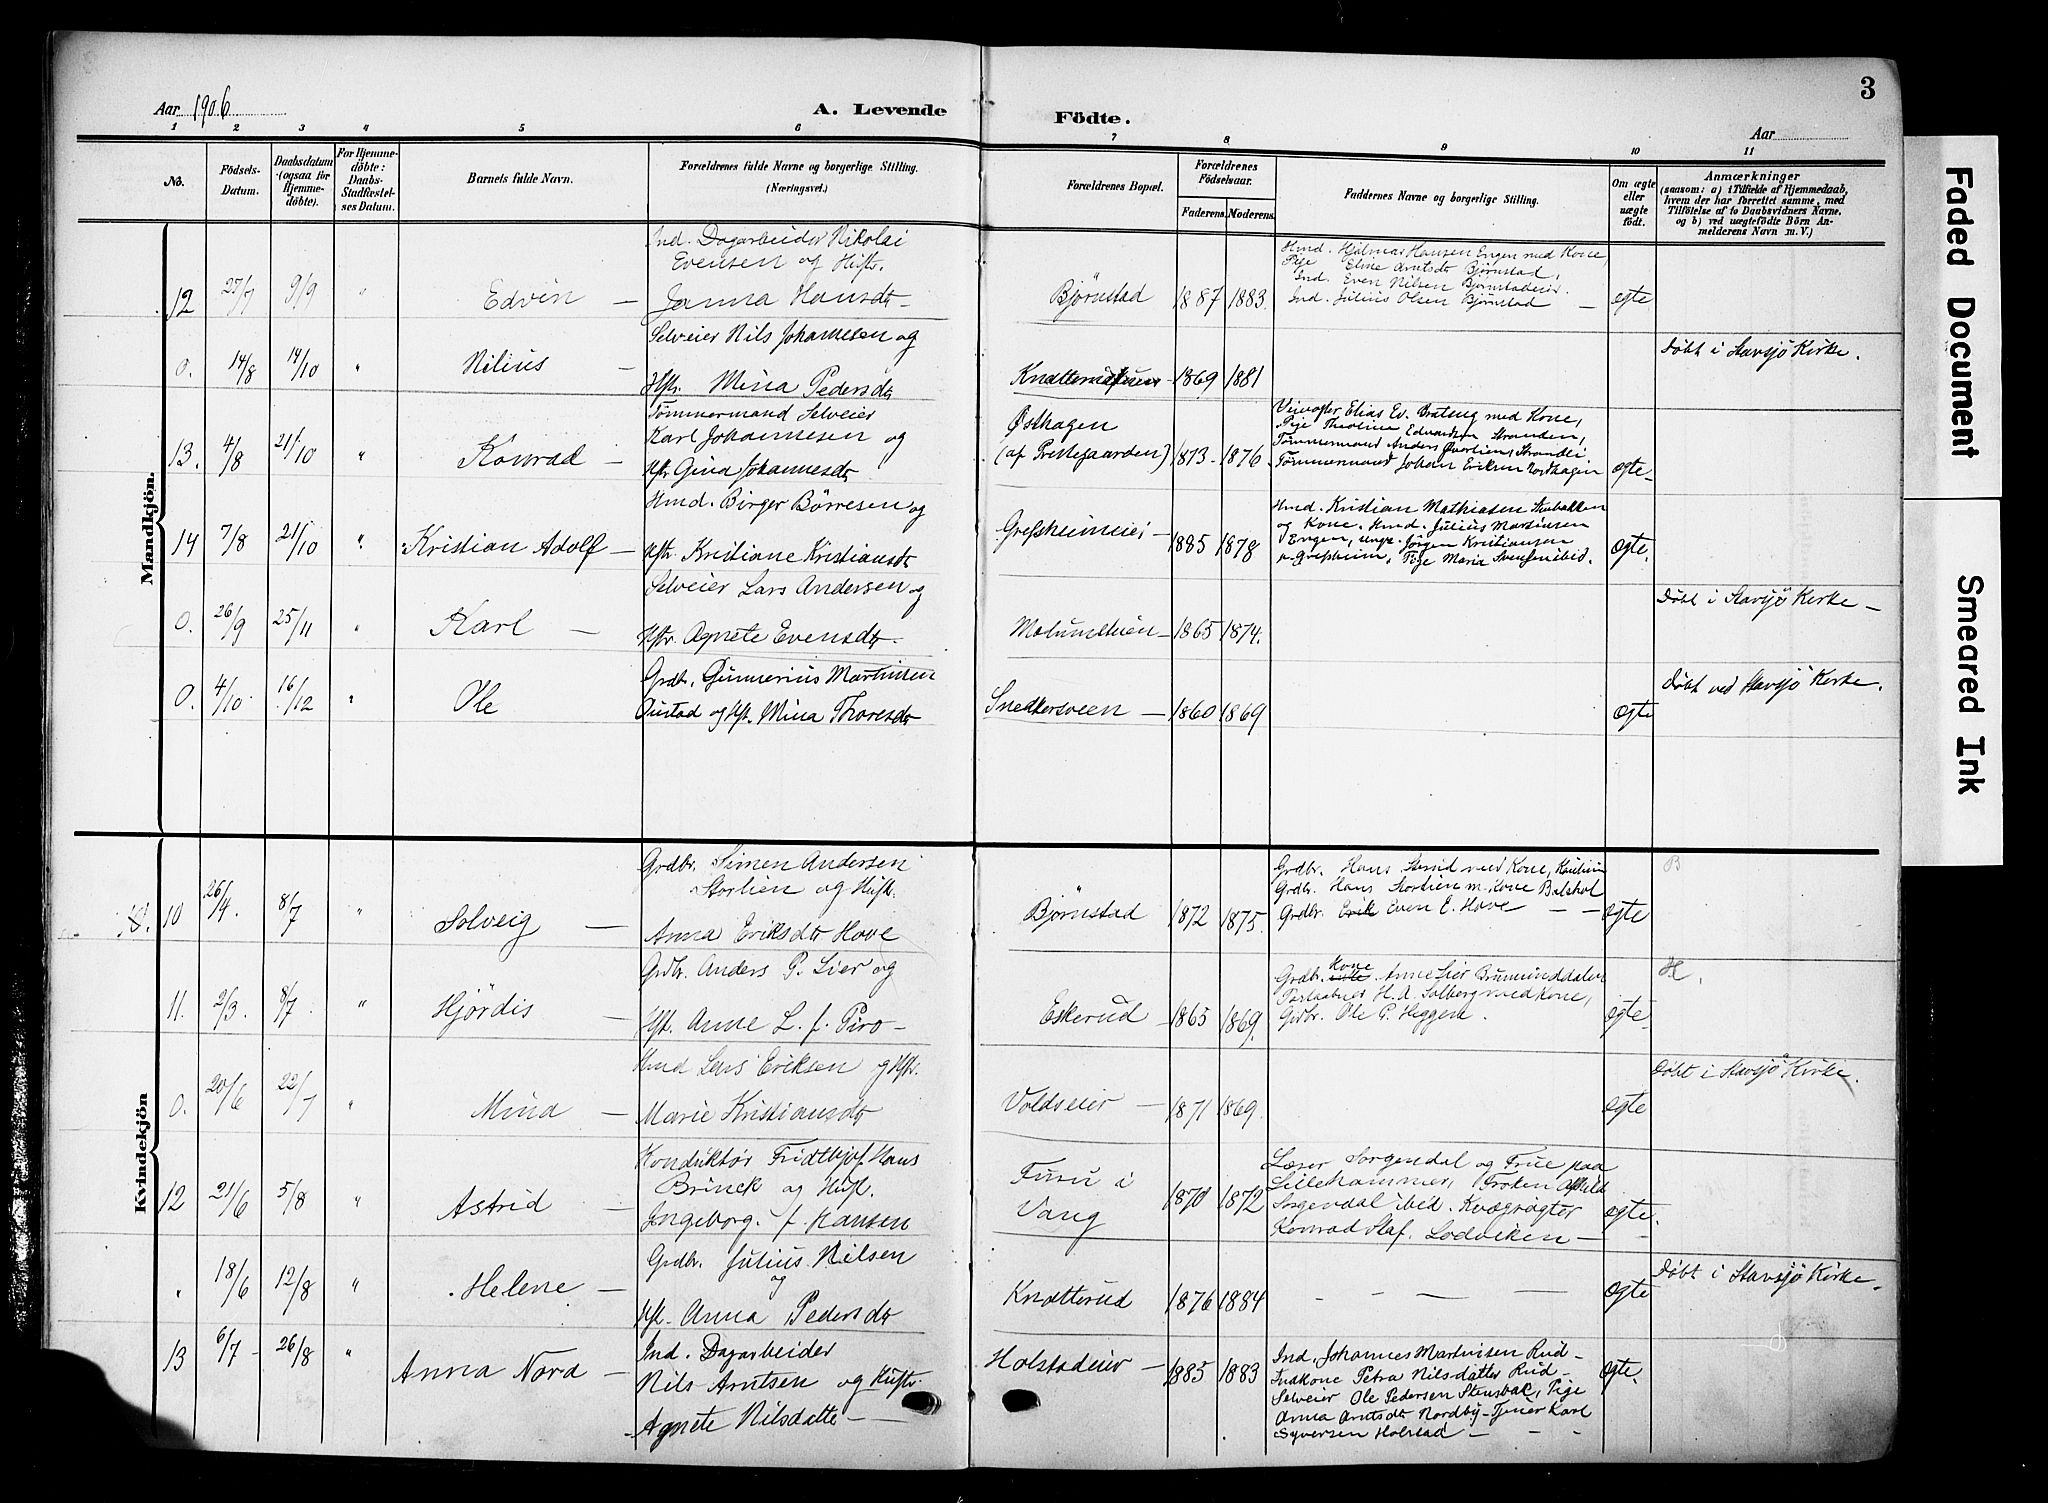 Aar 1906
A. Levende
Födte.
3
Aar
1 2 3 4 5 6 7 8 9 10 11
No.
Födsels-Datum.
Daabsdatum (ogsaa for Hjemmedöbte).
For Hjemmedöbte: Daabs-Stadfæstelses Datum.
Barnets fulde Navn.
Forældrenes fulde Navne og borgerlige Stilling. (Næringsvei.)
Forældrenes Bopæl.
Forældrenes Födselsaar.
Faderens. Moderens.
Faddernes Navne og borgerlige Stilling.
Om ægte eller uægte födt.
Anmærkninger
(saasom: a) i Tilfælde af Hjemmedaab, hvem der har forrettet samme, med Tilföielse af to Daabsvidners Navne, og b) ved uægtefödte Börn Anmelderens Navn m. V.)
Mandkjön.
12 27/7 9/9 " Edvin —
Ind. Dagarbeider Nikolai
Evensen og Hustr.
Janna Hansdtr
Bjørnstad 1887 1883.
Hmd. Hjalmar Hansen Engen med Kone,
Pige Eline Arntsdtr Bjørnstad,
Ind. Even Nilsen Bjørnstadeier.
Ind. Julius Olsen Bjørnstad —
egte
0. 14/8 14/10 " Nilius —
Selveier Nils Johannesen og
Hstr. Mina Pedersdtr
1869 1881
Døbt i Stavsjø Kirke.
13. 4/8 21/10 " Konrad —
Tømmermand Selveier
Karl Johannesen og
Hstr Gina Johannesdtr
Østhagen
(af Prestegaarden) 1873 1876
Elias Ev. Brateng med Kone,
Pige Theoline Edvardsen Stranden,
Tømmermand Anders Øverlien, Strandli
Tømmermand Johan Eriksen Nordhagen
egte
14 7/8 21/10 " Kristian Adolf —
Hmd. Birger Børresen og
Hstr. Kristiane Kristiansdtr
Grefsheimeier 1885 1878
Hmd. Kristian Mathiasen Stubakken
og Kone. Hmd. Julius Martinsen
Engen, ungk. Jørgen Kristiansen
Grefsheim, Pige Maria Svensen ibid.
egte.
0. 26/9 25/11 " Karl —
Selveier Lars Andersen og
Hstr. Agnete Evensdtr.
1865 1874.
Døbt i Stavsjø Kirke —
0. 4/10 16/12 " Ole
Grdbr. Gunnerius Martinsen
og Hst. Mina Thoresdtr
Snedkersveen — 1860 1869
egte
Døbt ved Stavsjø Kirke.
Kvindekjön
10 26/4. 8/7 " Solveig —
Grdbr. Simen Andersen
Storlien og Hust.
Anna Eriksdtr Hove
Bjørnstad 1872 1875.
Grdbr. Hans Stenid med Kone,
Grdbr. Hans Storlien m. Kone Balshol
Grdbr. Erik Even E. Hove — —
egte
B
11. 2/3. 8/7. " Hjördis —
Grdbr. Anders P. Lier og
Hst. Anne L. f. Piro —
Eskerud 1865 1869.
Kone
Grdbr. Anne Lier Brumunddalen
H. A. Solberg med Kone,
Grdbr. Ole P. Heggen.
egte
H.
0. 20/6 22/7 " Mina —
Hmd Lars Eriksen og Hstr.
Marie Kristiansdtr
Voldseier — 1871 1869.
egte
Døbt i Stavsjø Kirke.
12 21/6 5/8 " Astrid —
Konduktør Fridthjof Hans
Brinck og Hust.
Ingeborg. f. Hansen
Furu i
Vang 1870 1872
Læser Sorgendal og Frue paa
Lillehammer, Frøken
Sorgendal ibid. Kvægrøgter
Konrad Staf. Lodviken —
egte.
" 18/6 12/8 " Helene —
Grdbr. Julius Nilsen
og
Hst. Anna Pedersdtr
Knætterud 1876 1884
— — — —
egte
Døbt i Stavsjø Kirke.
13 6/7 26/8 " Anna Nora —
Ind. Dagarbeider
Nils Arntsen og Hustr.
Agnete Nilsdatter —
Holstadeier — 1885 1883
Ind. Johannes Martinsen Rud —
Indkone Petra Nilsdatter Rud —
Selveier Ole Pedersen Stensbak, Pige
Anna Arntsdtr Nordby — Tjener Karl
Syversen Holstad — — —
egte.
Faded Document
Smeared Ink